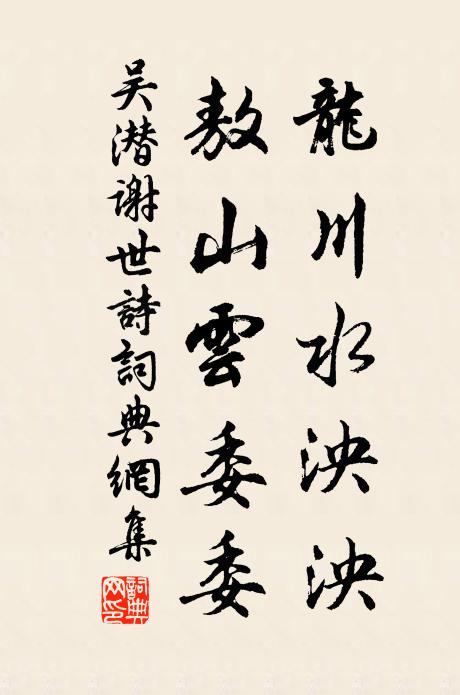 龍川水泱泱
敖山雲委委
吴潜谢世詩詞典網集
詞典網印